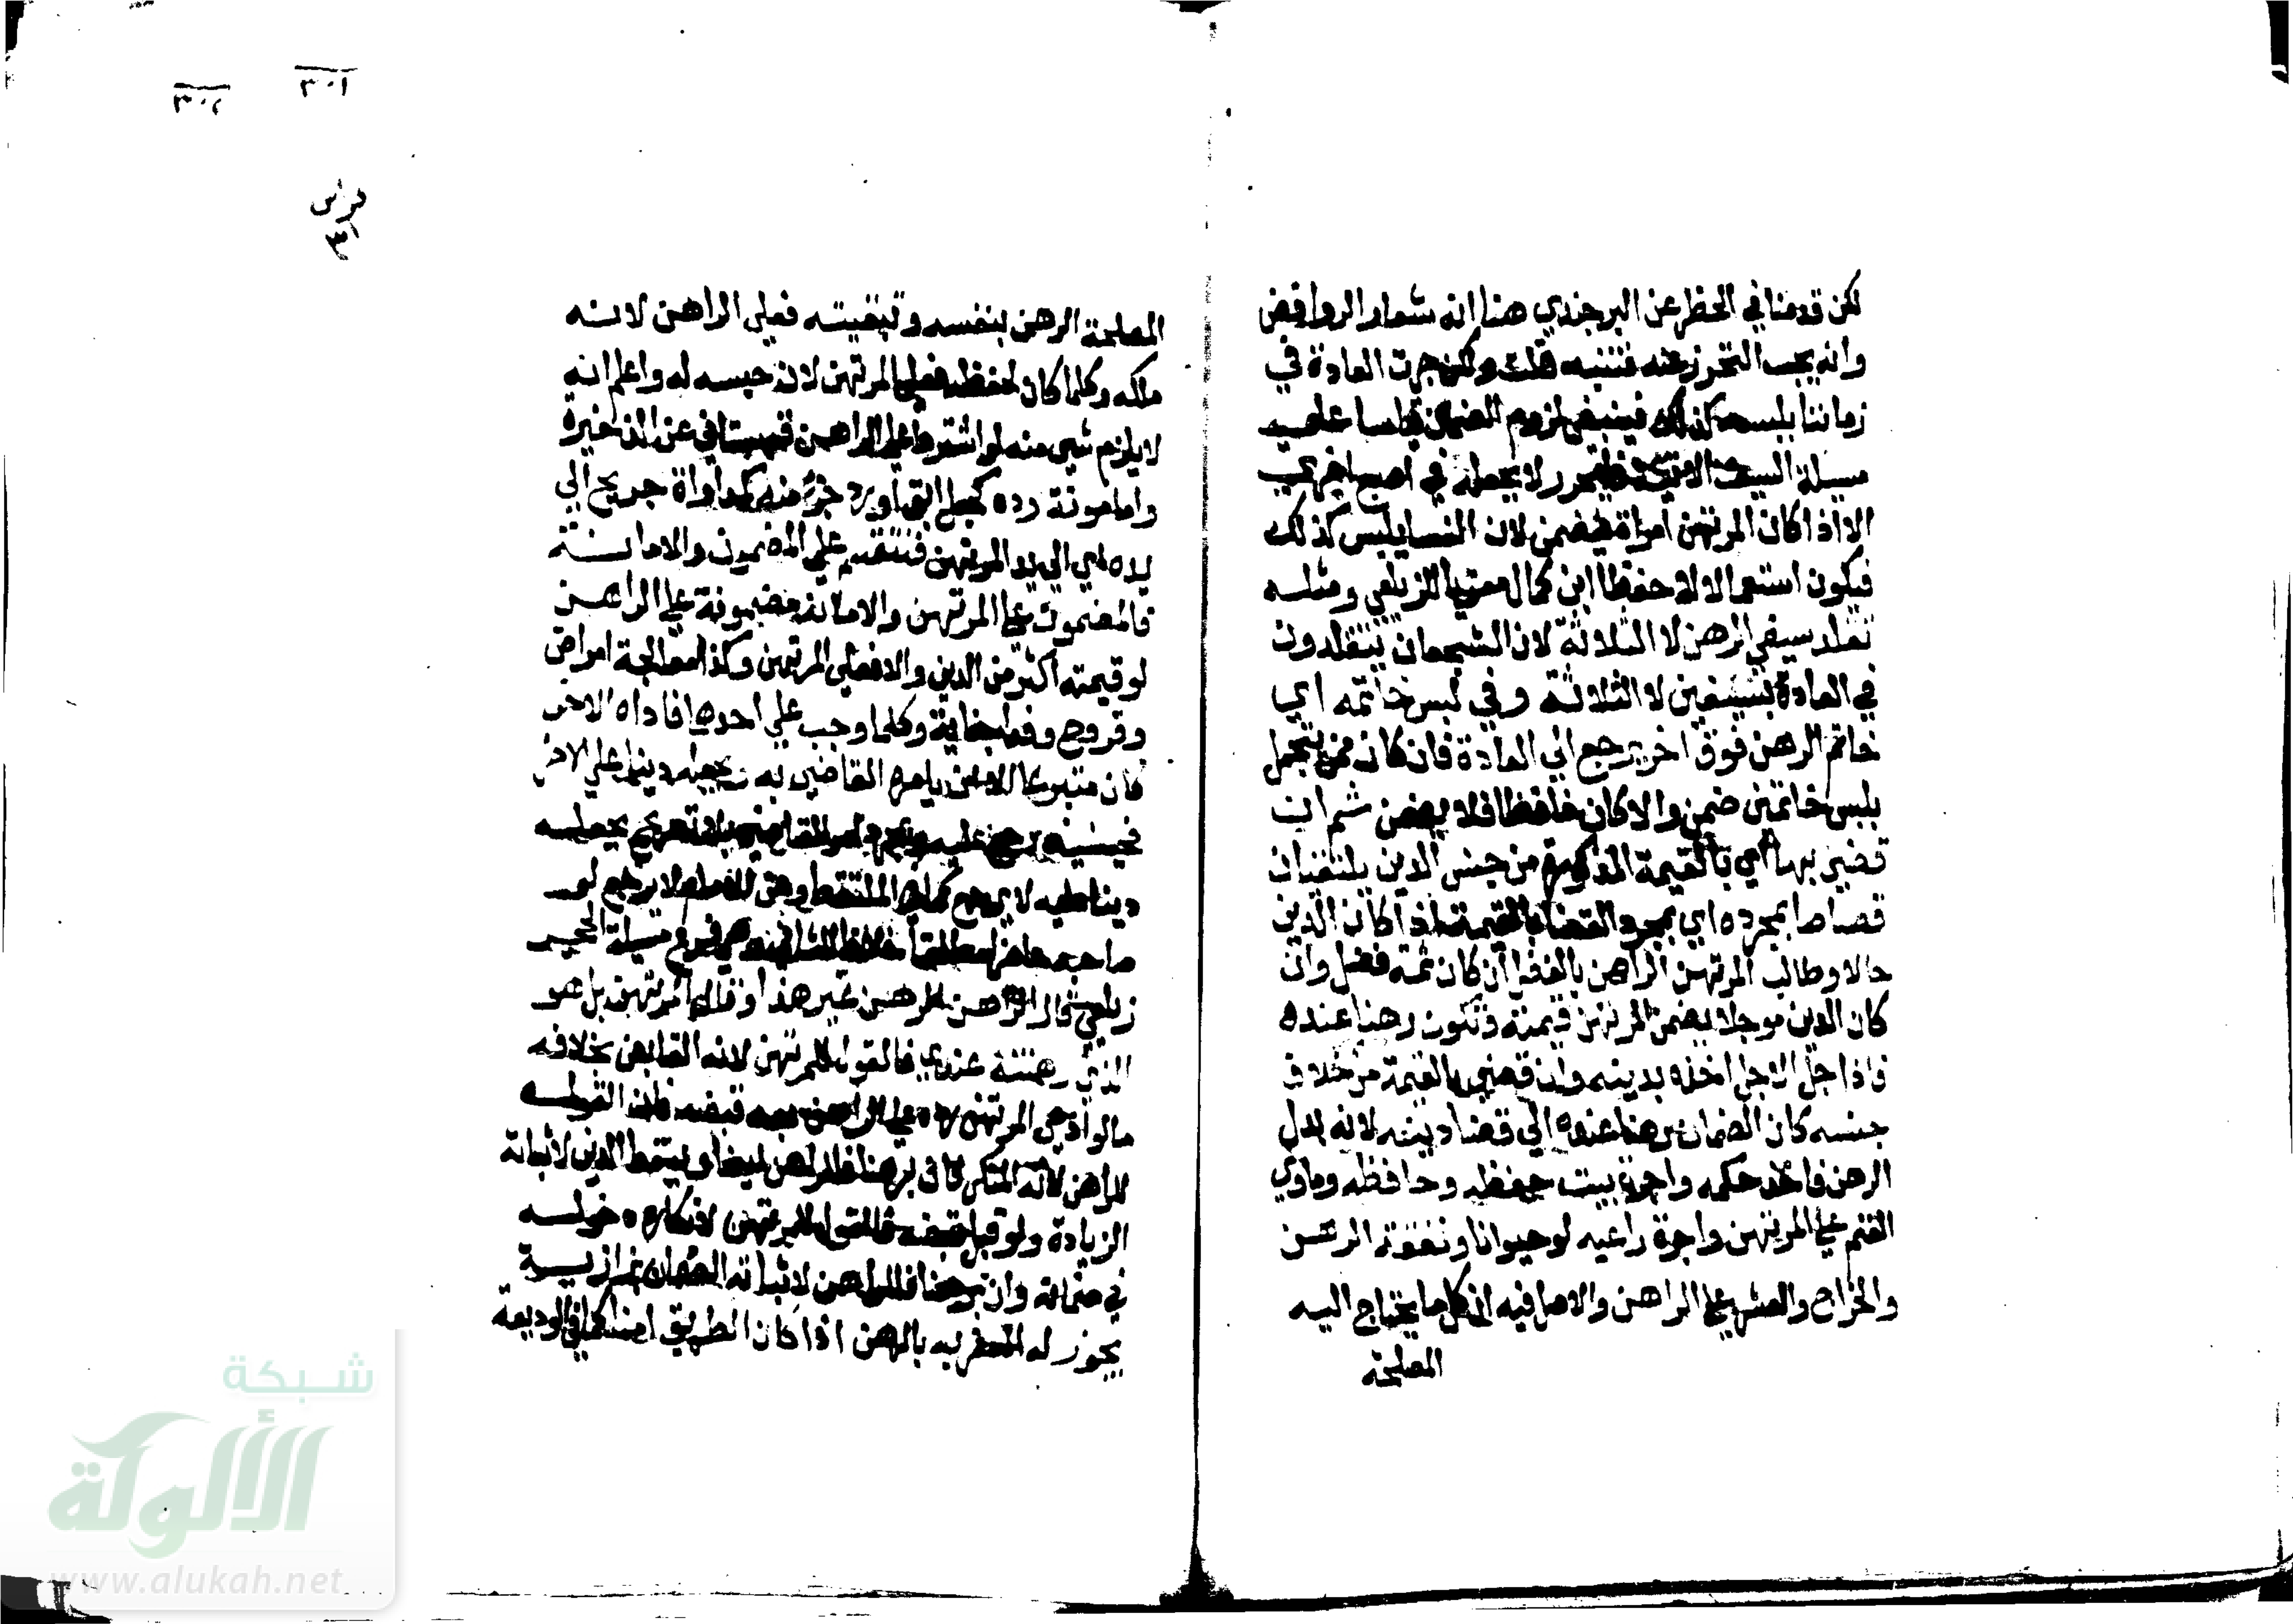 لكن قدمنا في الحظر عن البرجندي هنا انه شعار الروافض
وانه يجب التحرز عنه فتنبه قلت ولكن جرت العادة في
زماننا بلبسه كذلك فينبغي لزوم الضمان قياسا علي
مسيلة السيف الاتية فليحرر لا يجعله في اصبع اخري
الا اذا كان المرتهن امراة فيضمن لان النسا يلبس كذلك
فيكون استعمالا لا حفظا ابن كمال معزيا للزيلعي ومثله
تقلد سيفي الرهن لا الثلاثة لان الشجعان يتقلدون
في العادة بسيفين لا الثلاثة وفي لبس خاتمه اي
خاتم الرهن فوق اخر يرجع الي العادة فان كان ممن يتجمل
بلبس خاتمين ضمن والا كان حافظا فلا يضمن ثم ان
قضي بها اي بالقيمة المذكورة من جنس الدين يلتقيان
قصاصا بمجرده اي بمجرد القضا بالقيمة اذا كان الدين
حالا وطالب المرتهن الراهن بالفضل ان كان ثمة فضل وان
كان الدين موجلا يضمن المرتهن قيمته وتكون رهنا عنده
فاذا حل الاجل اخذه بدينه وان قضي بالقيمة من خلاف
جنسه كان الضمان رهنا عنده الي قضا دينه لانه بدل
الرهن فاخذ حكمه واجرة بيت حفظه وحافظه وماوي
الغنم علي المرتهن واجرة راعيه لو حيوانا ونفقة الرهن
والخراج والعشر علي الراهن والاصل فيه ان كل ما يحتاج اليه
المصلحة
٣٠١
٣٠٢
كراس
٣١
المصلحة الرهن بنفسه وتبقيته فعلي الراهن لانه
ملكه وكلما كان لحفظه فعلي المرتهن لان حبسه له واعلم انه
لا يلزم شي منه لو اشترط علي الراهن قهستاني عن الذخيرة
واما مونة رده كجعل ابق او رد جزء منه كمداواة جريح الي
يده اي الي يد المرتهن فتنقسم علي المضمون والامانة
فالمضمون علي المرتهن والامانة مضمونة علي الراهن
لو قيمته اكثر من الدين والا فعلي المرتهن وكذا معالجة امراض
وقروح وفدا جناية وكلما وجب علي احدهما فاداه الاخر
كان متبرعا الا ان يامره القاضي به ويجعله دينا علي الاخر
فحينئذ يرجع عليه وبمجرد امر القاضي بلا تصريح بجعله
دينا عليه لا يرجع كما في الملتقط وعن الامام لا يرجع لو
صاحبه حاضرا مطلقا خلافا للثاني وهي فرع مسيلة الحجر
زيلعي قال الراهن الرهن غير هذا وقال المرتهن بل هو
الذي رهنته عندي فالقول للمرتهن لانه القابض بخلاف
ما لو ادعي المرتهن رده علي الراهن بعد قبضه فان القول
للراهن لانه المنكر فان برهنا فللراهن ايضا ويسقط الدين لاثباته
الزيادة ولو قبل قبضه فالقول للمرتهن لانكاره دخوله
في ضمانه وان برهنا فللراهن لاثباته الضمان بزازية
يجوز له السفر به بالرهن اذا كان الطريق امنا كما في الوديعة
شبكة
الألوكة
www.alukah.net